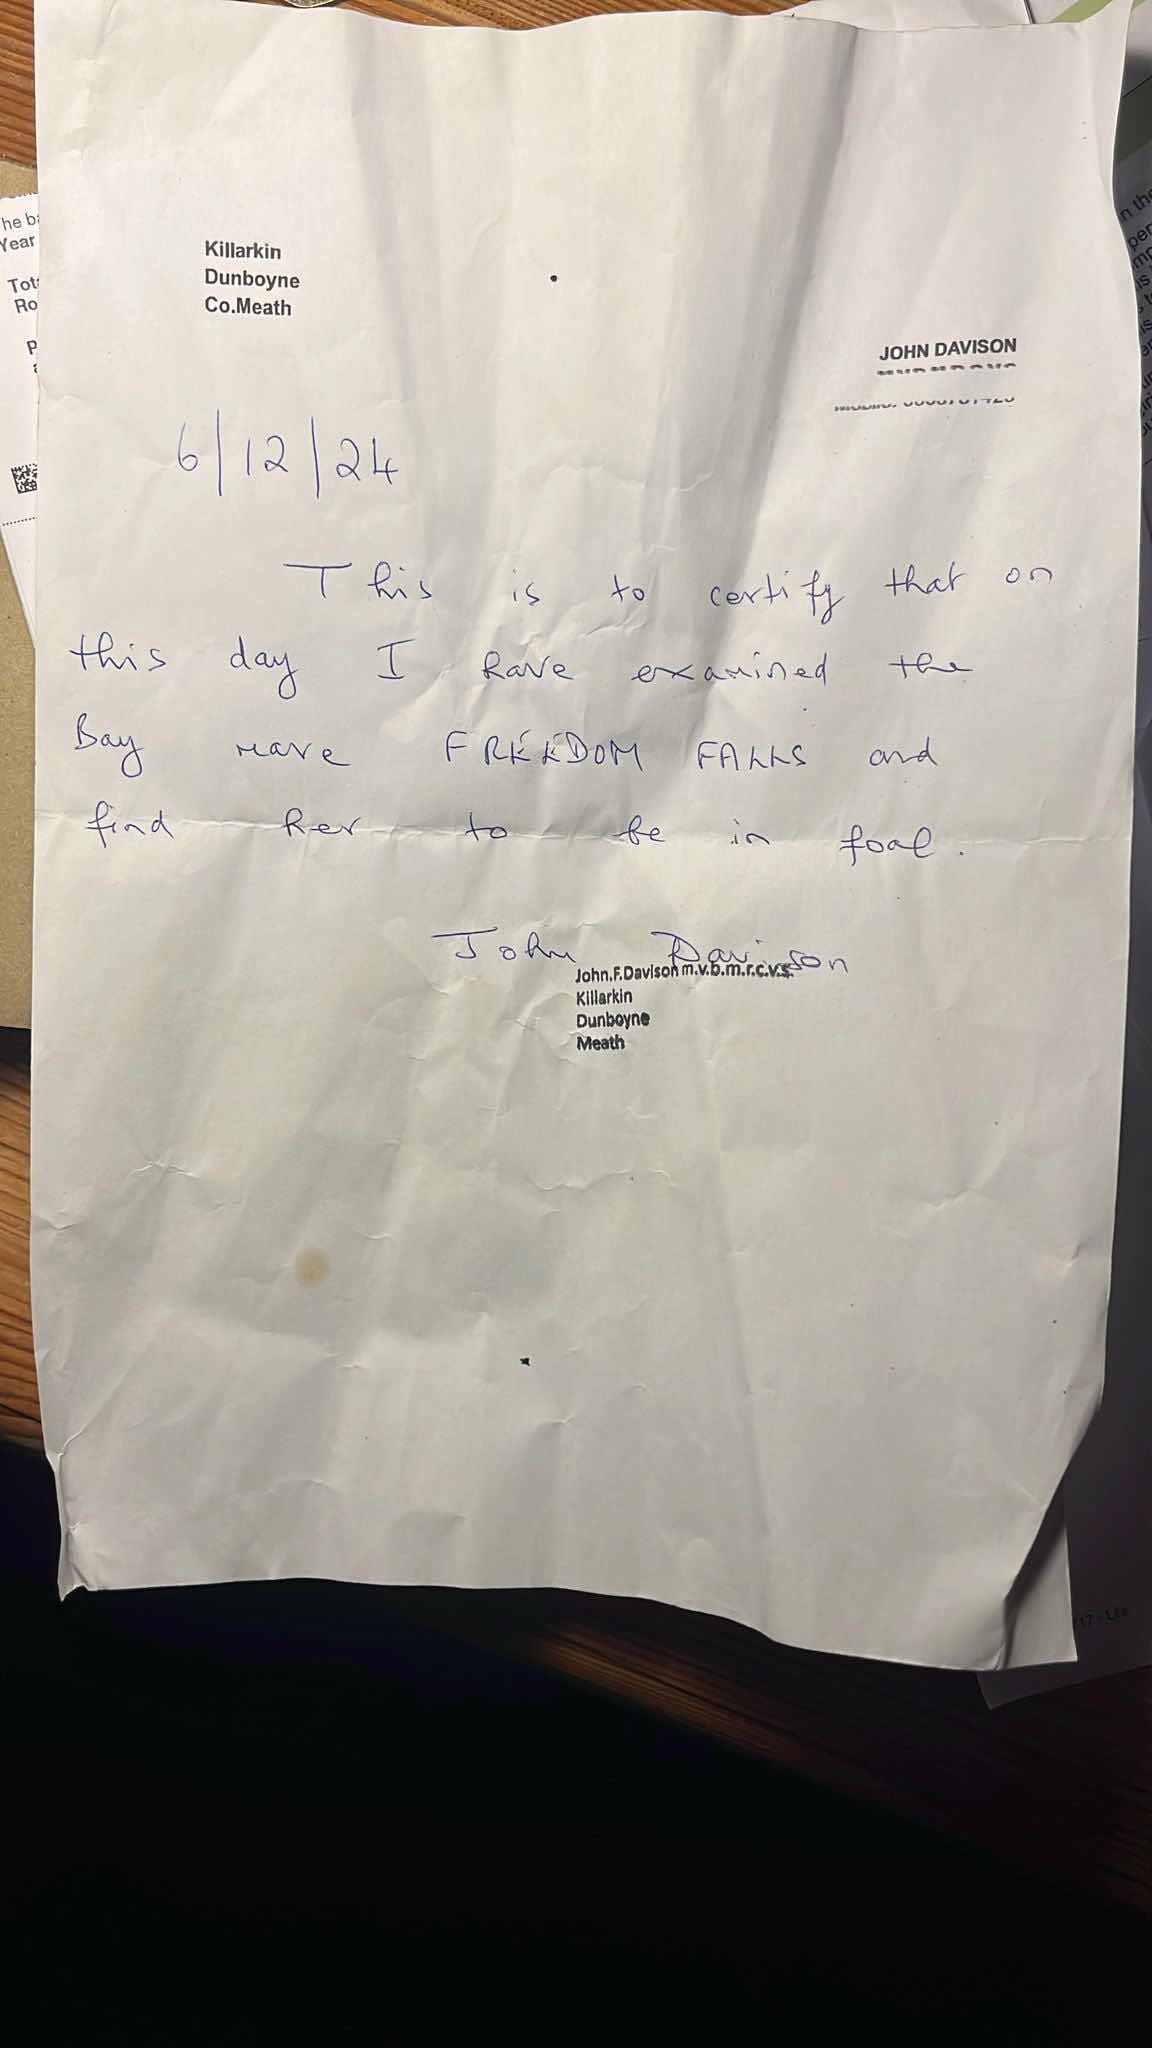 Killarkin
Dunboyne
Co.Meath
JOHN DAVISON
6/12/24
This is to certify that on
this day I have examined the
Bay mare FREEDOM FALLS and
find her to be in foal.
John Davison
John.F.Davison m.v.b.m.r.c.v.s.
Killarkin
Dunboyne
Meath
he
Year